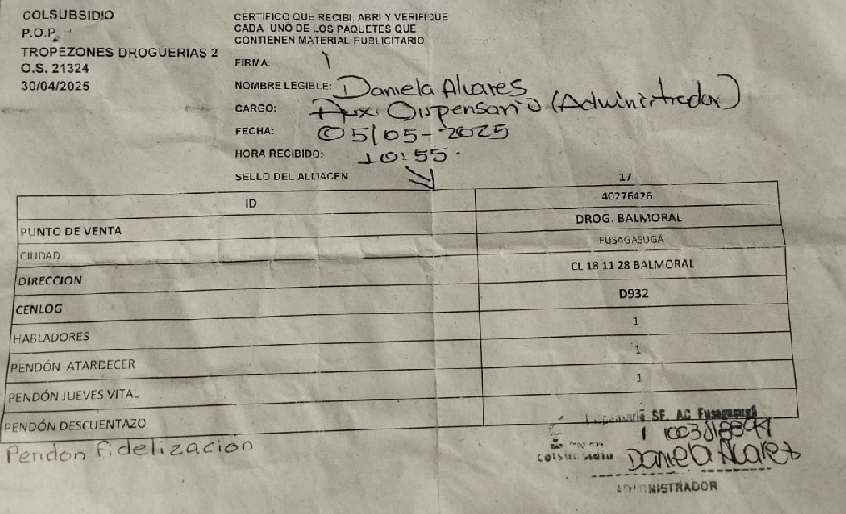 COLSUBSIDIO
P.O.P.
TROPEZONES DROGUERIAS 2
O.S. 21324
30/04/2025
CERTIFICO QUE RECIBI, ABRI Y VERIFIQUE
CADA UNO DE LOS PAQUETES QUE
CONTIENEN MATERIAL PUBLICITARIO
FIRMA:
NOMBRE LEGIBLE: Daniela Alvares
CARGO: Aux. Dispensario (Administrador)
FECHA: 05/05-2025
HORA RECIBIDO: 10:55
SELLO DEL ALMACEN
17
ID 40276426
PUNTO DE VENTA DROG. BALMORAL
CIUDAD FUSAGASUGÁ
DIRECCION CL 18 11 28 BALMORAL
CENLOG D932
HABLADORES 1
PENDÓN ATARDECER 1
PENDÓN JUEVES VITAL 1
PENDÓN DESCUENTAZO
Pendon fidelizacion
Dispensario SF. AC Fusagasugá
Colsubsidio Daniela Alvares
ADMINISTRADOR